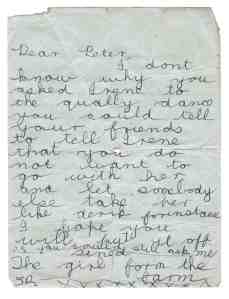 Dear Peter,
I dont
know why you
asked Irene to
the qually dance
you sould tell
your friends
to tell Irene
that you do
not want to
go with her
and let somebody
else take her
like derik forinstace
I hope you
will it off
is you
still ask me
The girl form the
farm